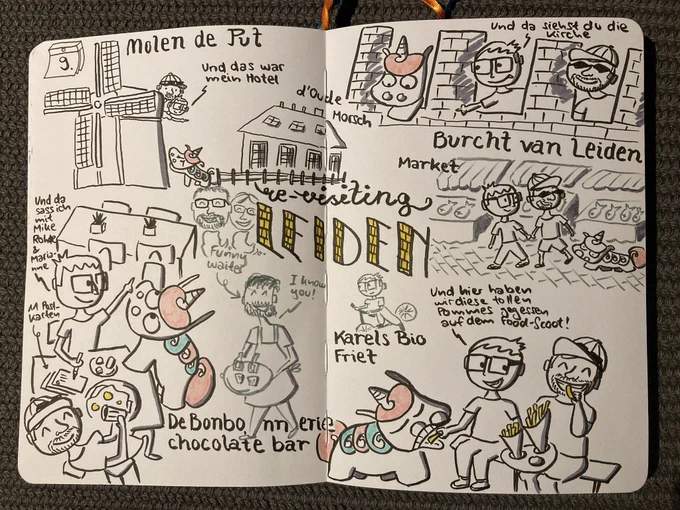 9.
Molen de Put
Und das war
mein Hotel
d'Oude
Morsch
Und da siehst du die
Kirche
Burcht van Leiden
Market
re-visiting
LEIDEN
Und da
sass ich
mit
Mike
Rohde
&
Maria-
nne
11 Post-
karten
Funny
waiter
I know
you!
De Bonbonnnerie
chocolate bar
Karels Bio
Friet
Und hier haben
wir diese tollen
Pommes gegessen
auf dem Food-Scoot!